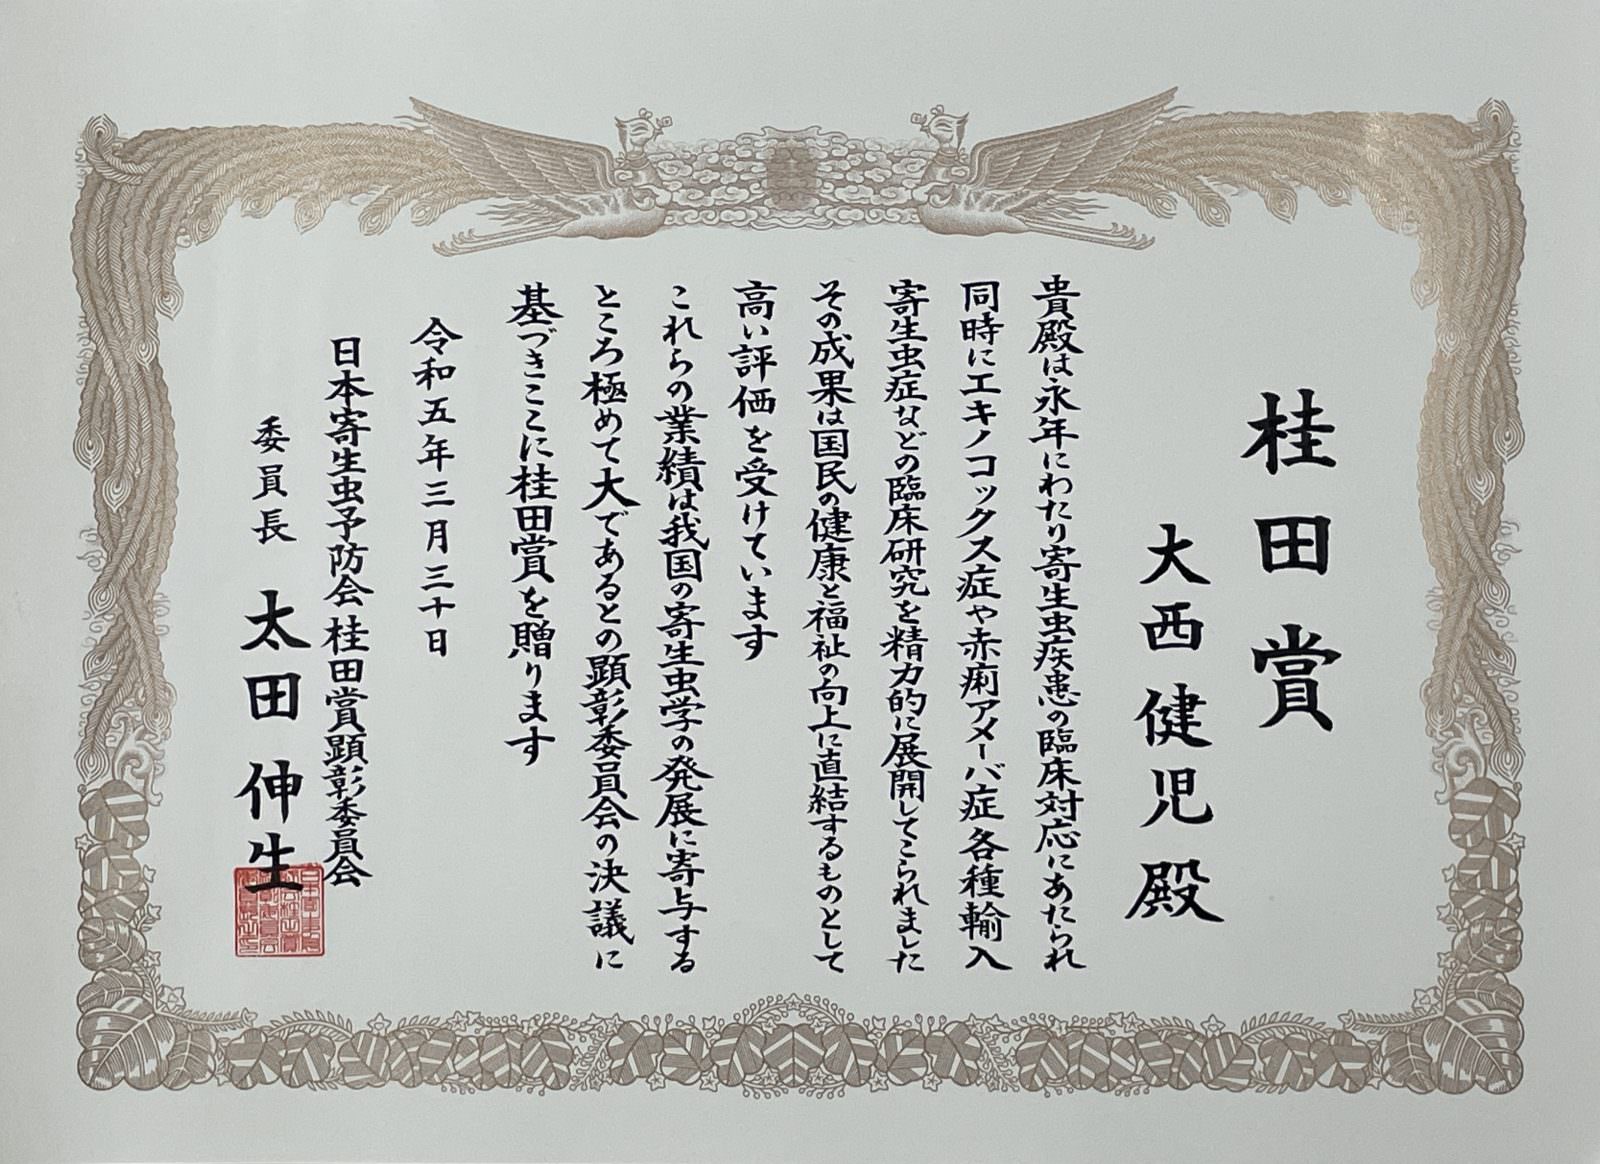 桂田賞
大西健児殿
貴殿は永年にわたり寄生虫疾患の臨床対応にあたられ
同時にエキノコックス症や赤痢アメーバ症各種輸入
寄生虫症などの臨床研究を精力的に展開してこられました
その成果は国民の健康と福祉の向上に直結するものとして
高い評価を受けています
これらの業績は我国の寄生虫学の発展に寄与する
ところ極めて大であるとの顕彰委員会の決議に
基づきここに桂田賞を贈ります
令和五年三月三十日
日本寄生虫予防会桂田賞顕彰委員会
委員長 太田伸生